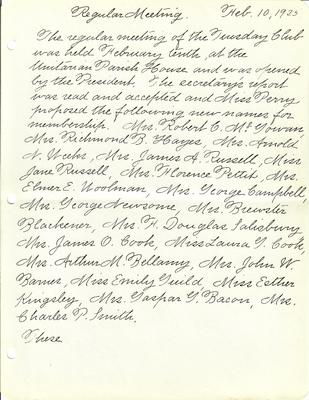 Regular Meeting. Feb. 10, 1933
The regular meeting of the Tuesday Club
was held February tenth, at the
Unitarian Parish House and was opened
by the President. The secretary's report
was read and accepted and Miss Perry
proposed the following new names for
membership. Mrs. Robert C. McGowan
Mrs. Richmond B. Hayes, Mrs. Arnold
N. Weeks, Mrs. James A. Russell, Miss
Jane Russell, Mrs. Florence Pettit, Mrs.
Elmer E. Woolman, Mrs. George Campbell,
Mrs. George Newsome, Mrs. Brewster
Blackener, Mrs. F. Douglas Salisbury
Mrs. James O. Cook, Miss Laura G. Cook,
Mrs. Arthur M. Bellamy, Mrs. John W.
Barnes, Miss Emily Guild, Miss Esther
Kingsley, Mrs. Gaspar G. Bacon, Mrs.
Charles P. Smith.
These